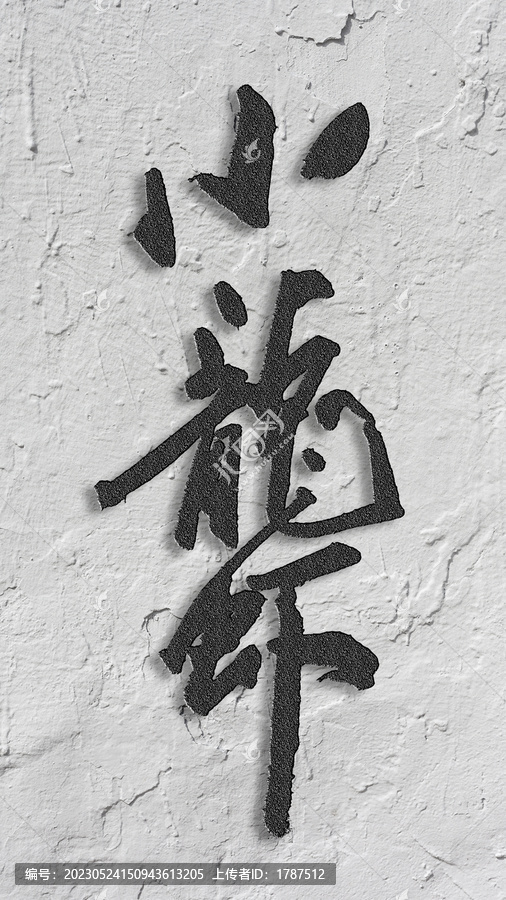 小龍虾
编号：20230524150943613205 上传者ID：1787512